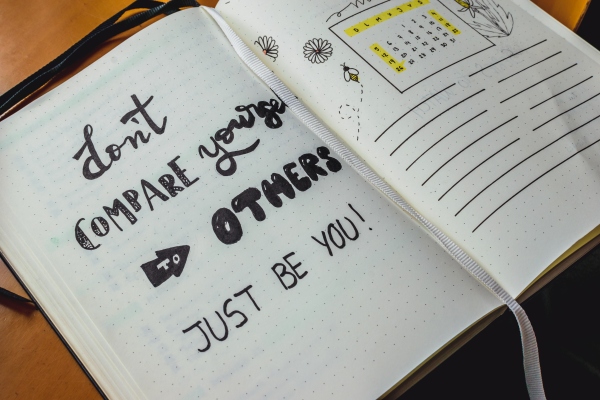 don't
COMPARE yourse
TO OTHERS
JUST BE YOU!